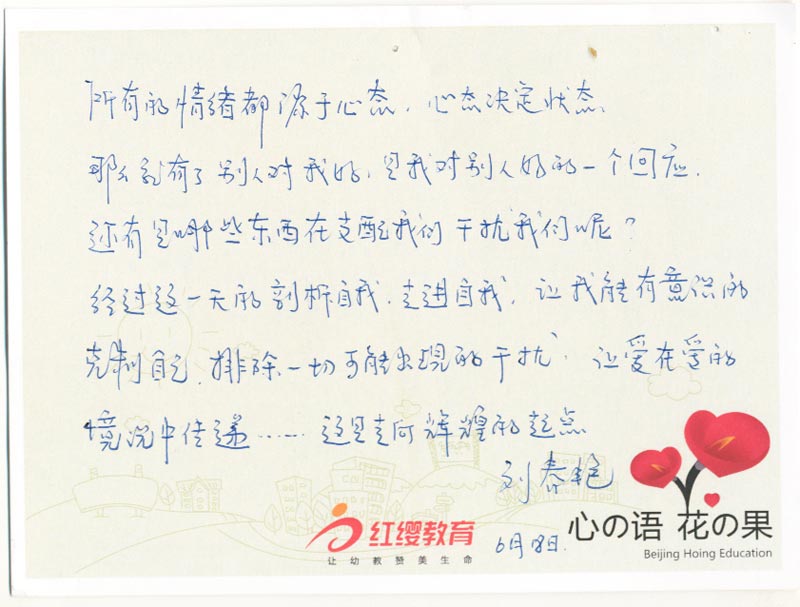 所有的情绪都源于心态，心态决定状态。
那么就有了别人对我好，是我对别人好的一个回应。
还有是哪些东西在支配我们干扰我们呢？
经过这一天的剖析自我，走进自我，让我能有意识的
克制自己，排除一切可能出现的干扰，让爱在爱的
境况中传递……这是走向辉煌的起点
刘春艳
6月18日.
红缨教育
让幼教赞美生命
心の语 花の果
Beijing Hoing Education